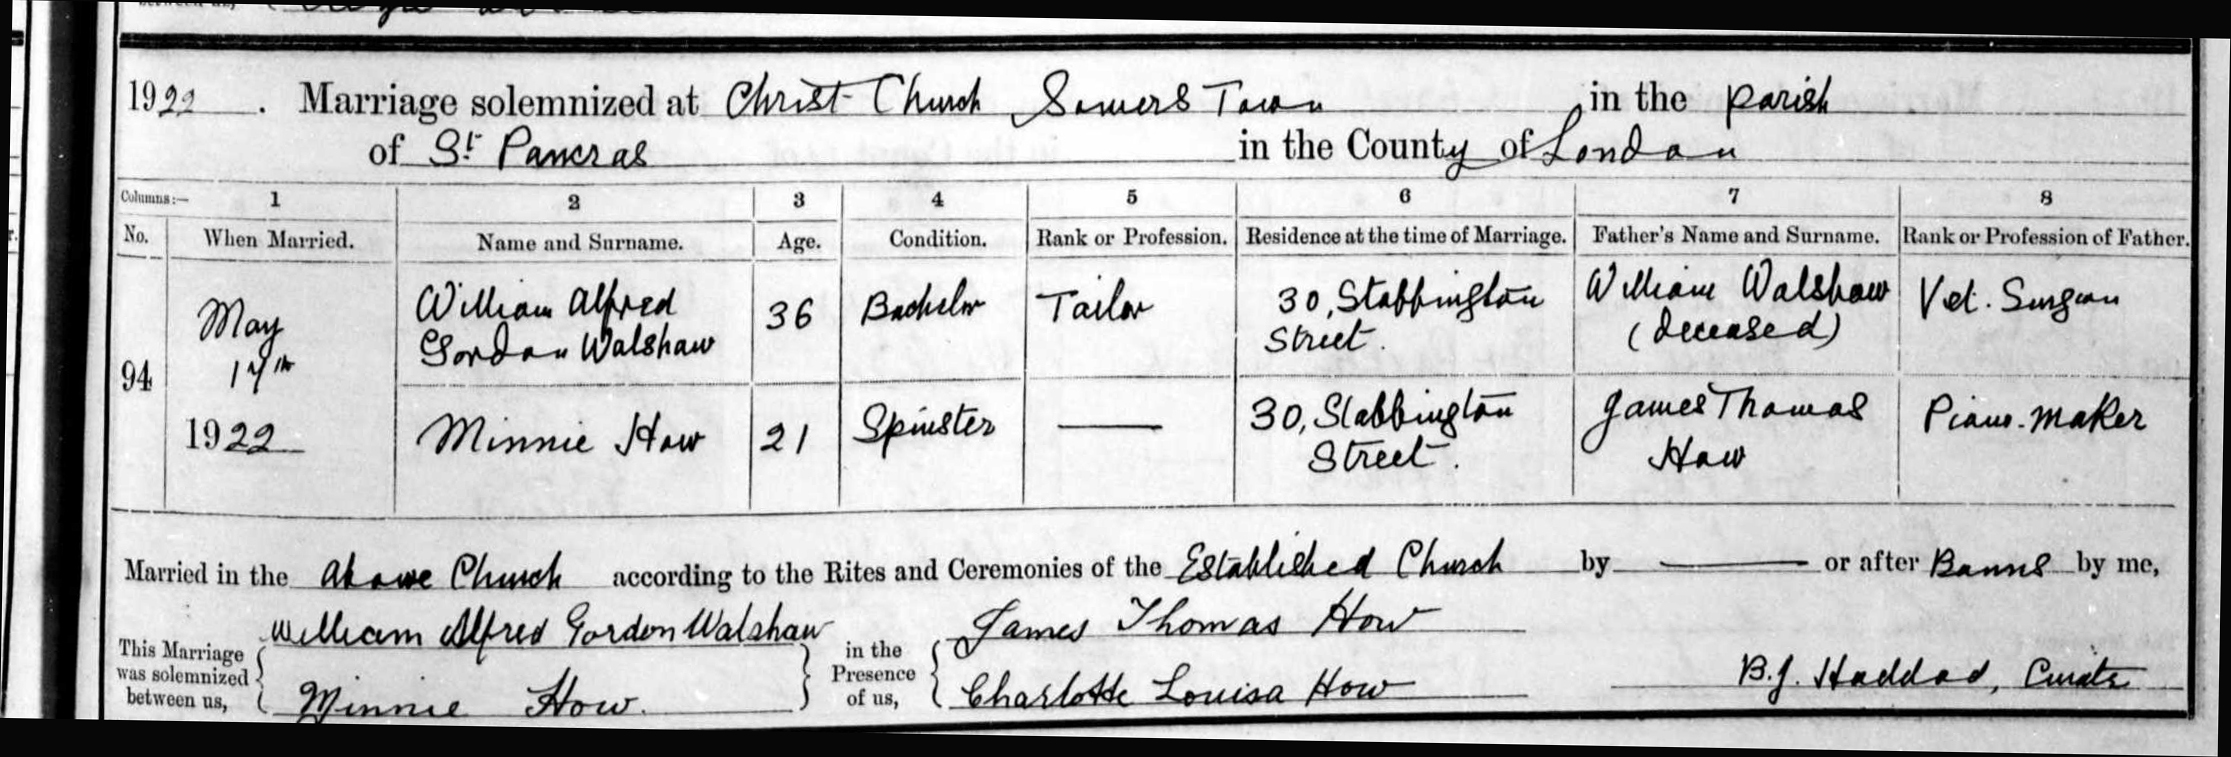 1922. Marriage solemnized at Christ Church Somers Town in the parish
of St Pancras in the County of London
Columns:— 1 2 3 4 5 6 7 8
No. When Married. Name and Surname. Age. Condition. Rank or Profession. Residence at the time of Marriage. Father's Name and Surname. Rank or Profession of Father.
94 May 17th 1922
William Alfred Gordon Walshaw 36 Bachelor Tailor 30, Stabbington Street. William Walshaw (deceased) Vet. Surgeon
Minnie How 21 Spinster — 30, Stabbington Street. James Thomas How Piano-maker
Married in the above Church according to the Rites and Ceremonies of the Established Church by — or after Banns by me,
This Marriage was solemnized between us, William Alfred Gordon Walshaw
Minnie How.
in the Presence of us, James Thomas How
Charlotte Louisa How
B.J. Haddad, Curate